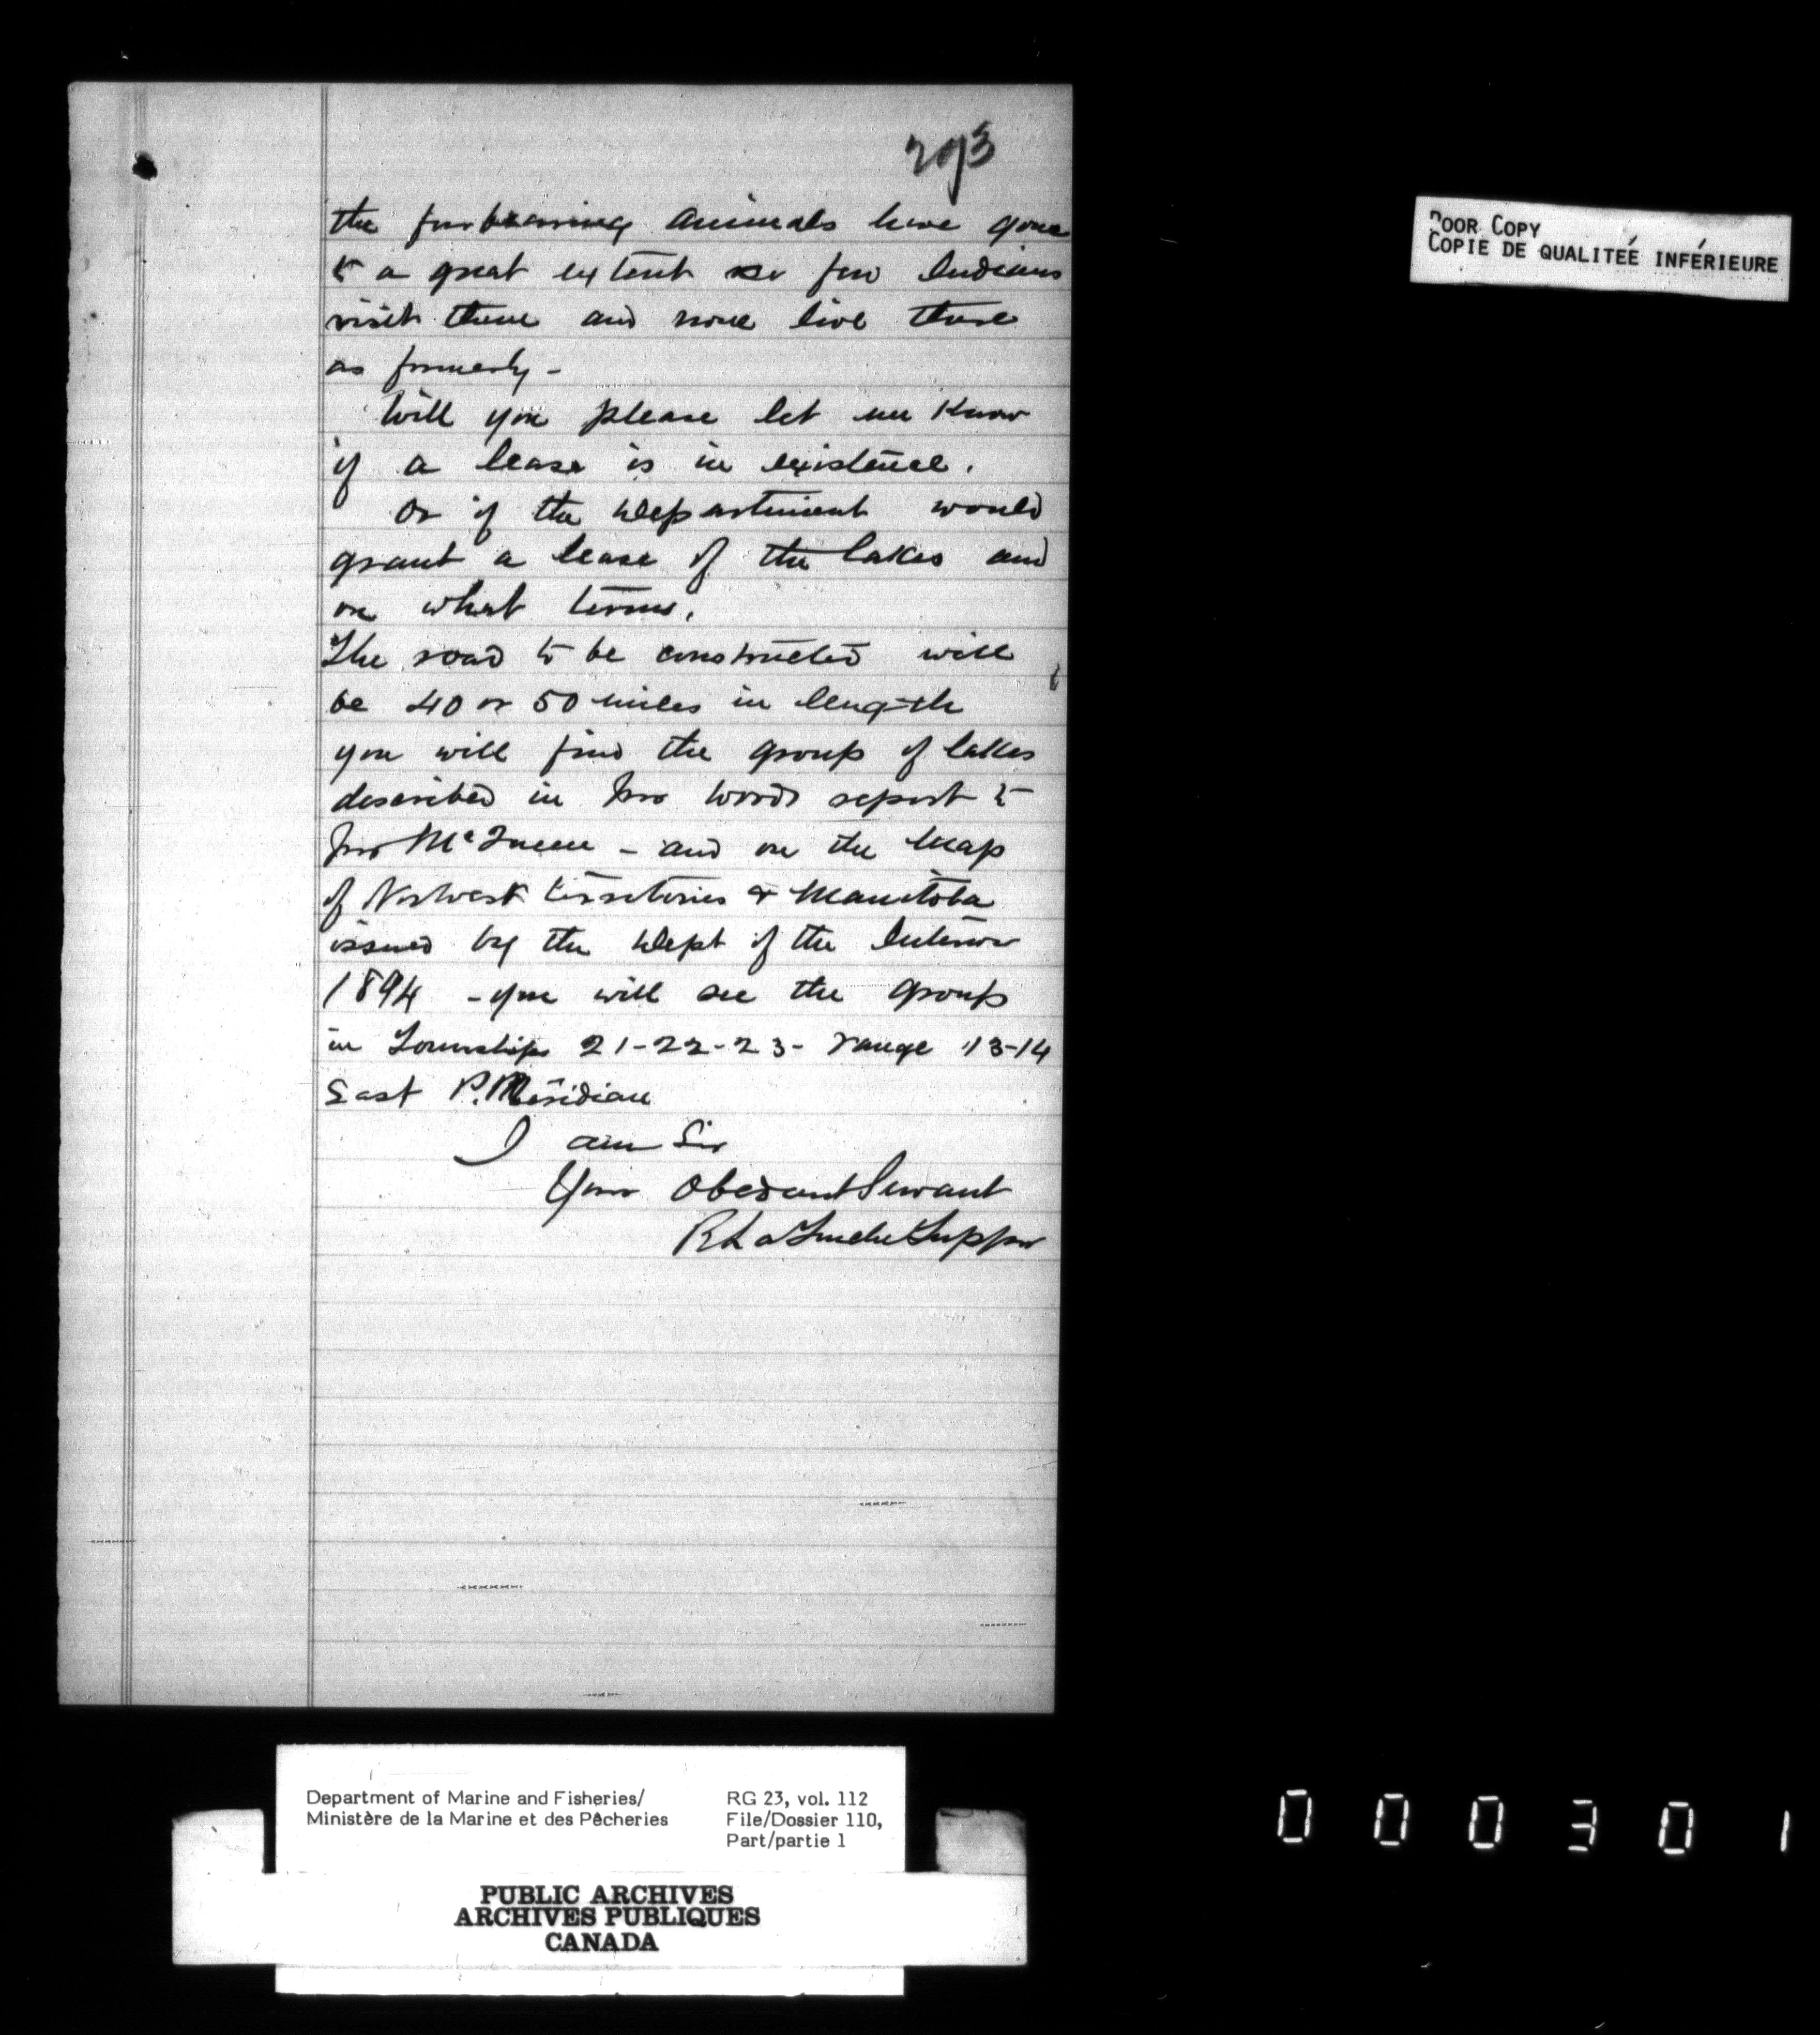 293
the furbearing animals have gone
to a great extent so few Indians
visit there and none live there
as formerly -
Will you please let me know
if a lease is in existence.
Or if the Department would
grant a lease of the lakes and
on what terms.
The road to be constructed will
be 40 or 50 miles in length
you will find the group of lakes
described in Mr Woods report to
Mr McQueen - and on the Map
of Norwest territories & Manitoba
issued by the Dept of the Interior
1894 - you will see the group
in Townships 21-22-23- range 13-14
East P. Meridian
I am Sir
Your Obedant Servant
R La Touche Tupper
POOR COPY
COPIE DE QUALITEÉ INFÉRIEURE
Department of Marine and Fisheries/
Ministère de la Marine et des Pêcheries
RG 23, vol. 112
File/Dossier 110,
Part/partie 1
PUBLIC ARCHIVES
ARCHIVES PUBLIQUES
CANADA
000301